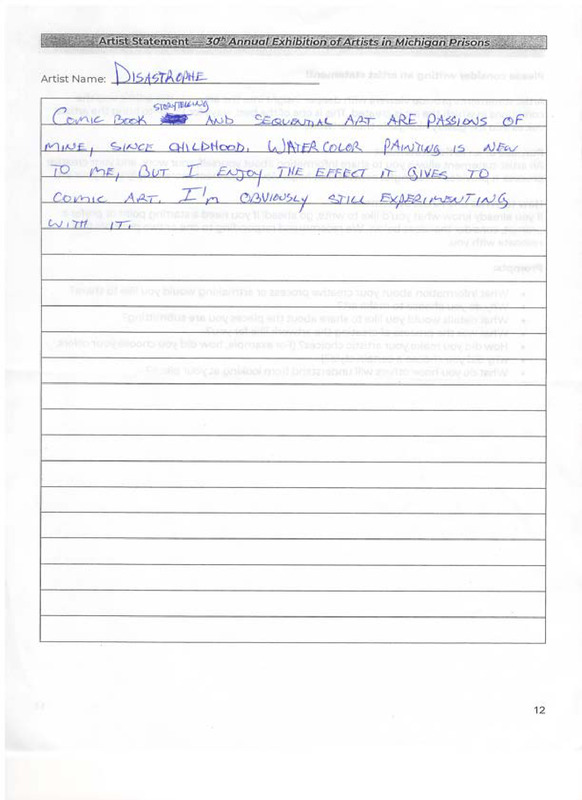 Artist Statement — 30th Annual Exhibition of Artists in Michigan Prisons
Artist Name: DISASTROPHE
STORYTELLING
COMIC BOOK AND SEQUENTIAL ART ARE PASSIONS OF
MINE, SINCE CHILDHOOD. WATERCOLOR PAINTING IS NEW
TO ME, BUT I ENJOY THE EFFECT IT GIVES TO
COMIC ART. I'M OBVIOUSLY STILL EXPERIMENTING
WITH IT.
12